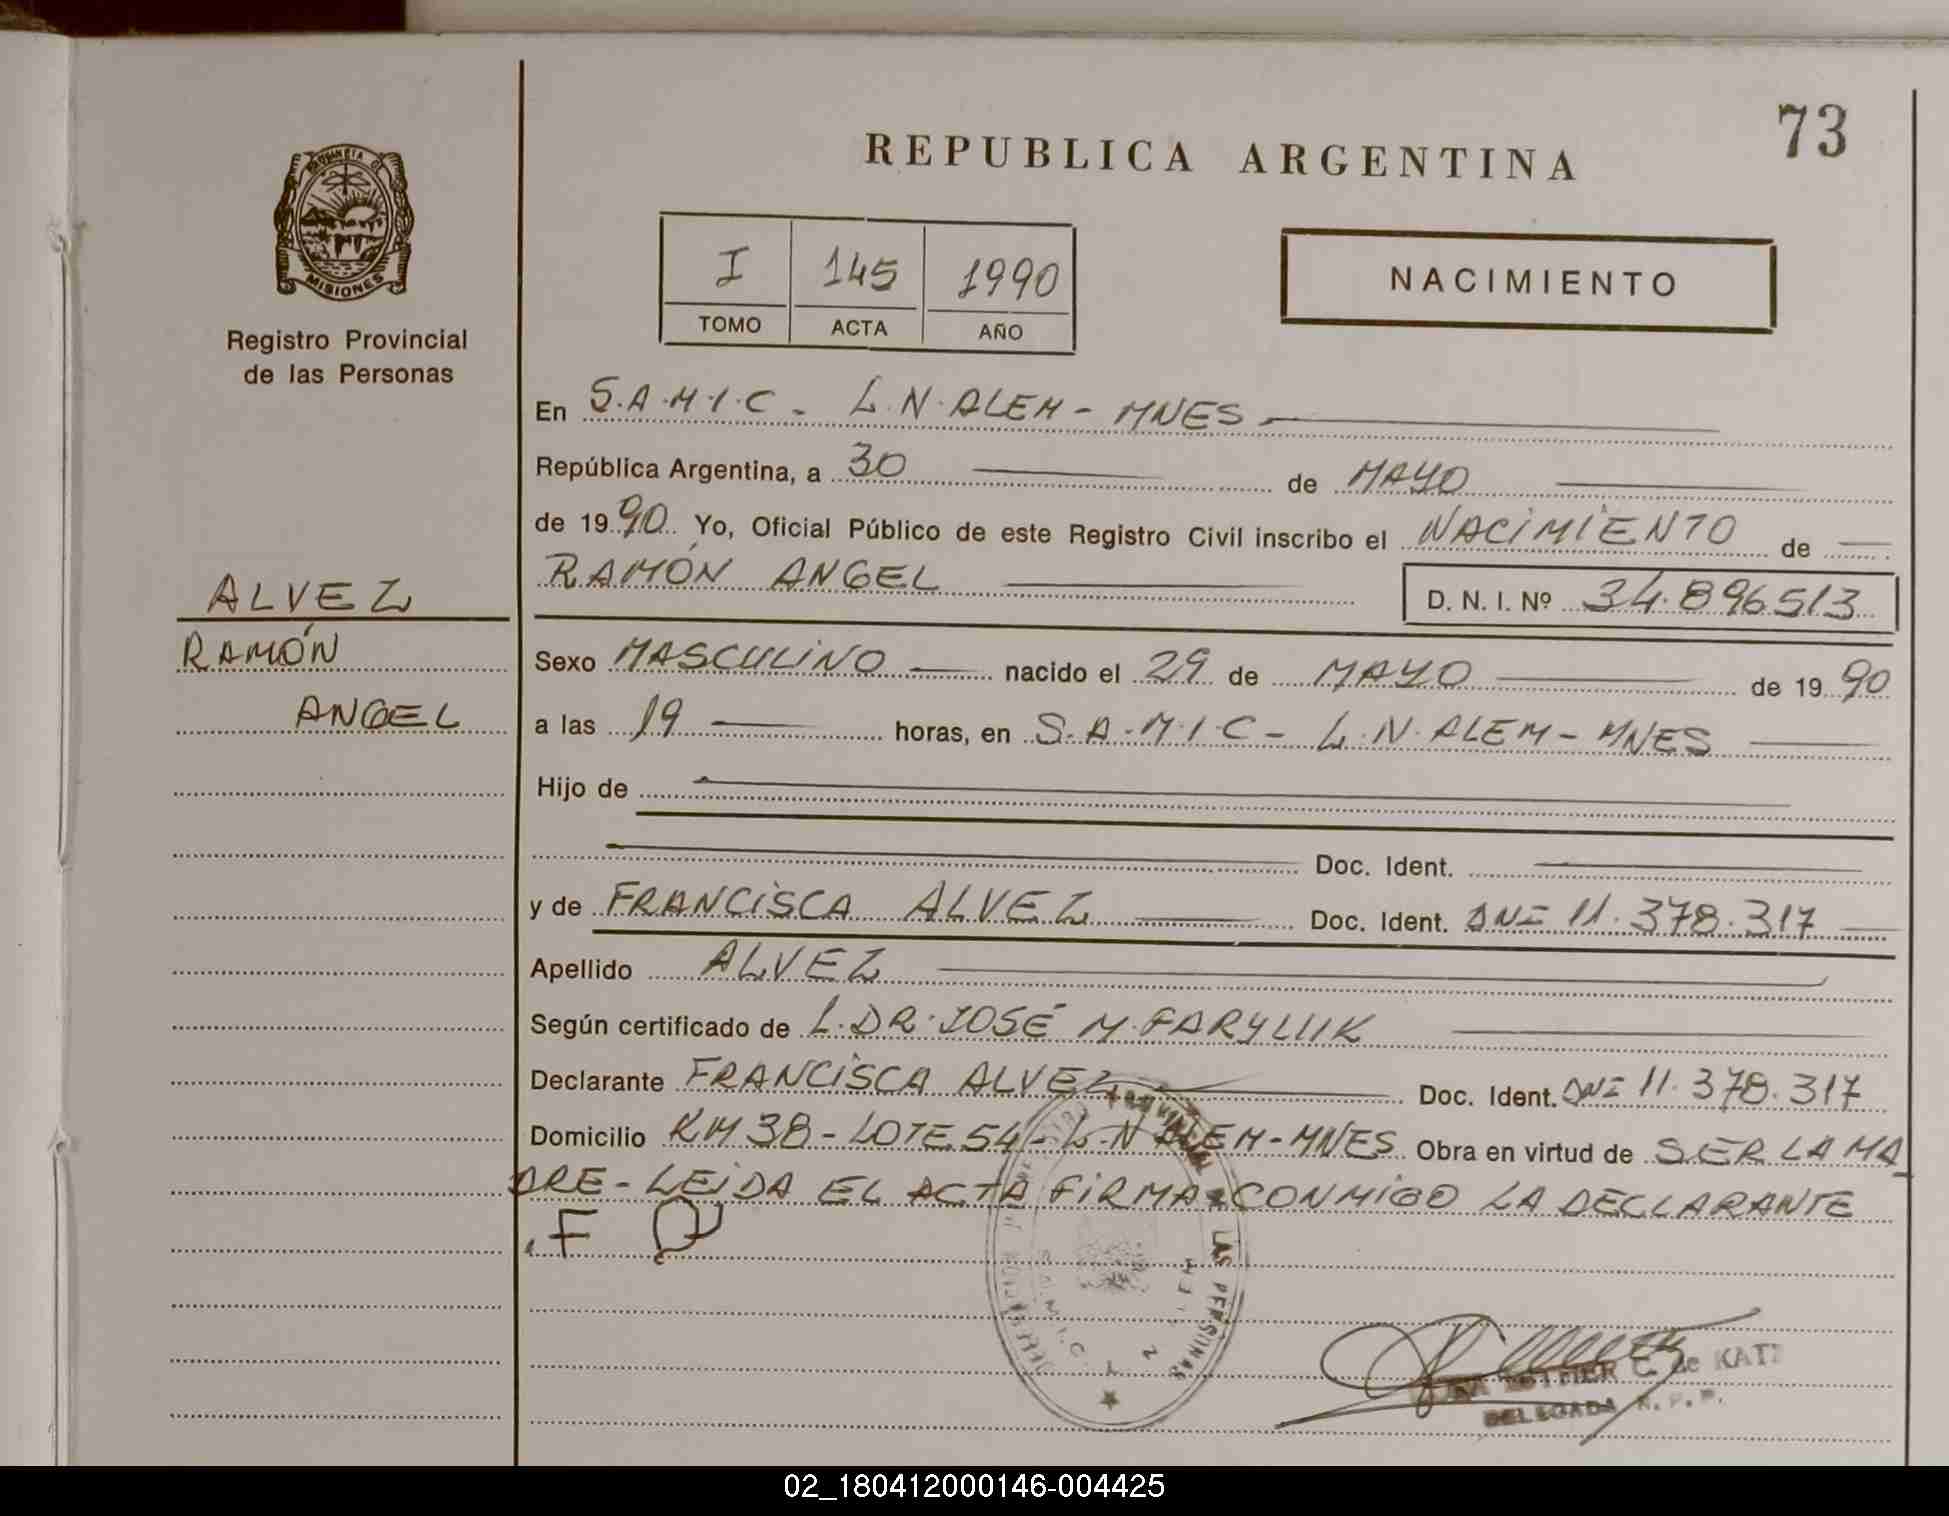 73
REPUBLICA ARGENTINA
PROVINCIA DE
MISIONES
Registro Provincial
de las Personas
I 145 1990
TOMO ACTA AÑO
NACIMIENTO
En S.A.M.I.C - L.N.ALEM - MNES
República Argentina, a 30 de MAYO
de 1990 Yo, Oficial Público de este Registro Civil inscribo el NACIMIENTO de
RAMÓN ANGEL D. N. I. Nº 34.896513
ALVEZ
RAMÓN
ANGEL
Sexo MASCULINO nacido el 29 de MAYO de 1990
a las 19 horas, en S.A.M.I.C - L.N.ALEM - MNES
Hijo de
Doc. Ident.
y de FRANCISCA ALVEZ Doc. Ident. DNI 11.378.317
Apellido ALVEZ
Según certificado de L.DR.JOSÉ M.FARYLUK
Declarante FRANCISCA ALVEZ Doc. Ident. DNI 11.378.317
Domicilio KM 38 - LOTE 54 - L.N ALEM - MNES Obra en virtud de SER LA MA
DRE - LEIDA EL ACTA FIRMA CONMIGO LA DECLARANTE
.F
LAS PERSONAS
S.A.M.I.C. L N ALEM
ESTHER C. de KATZ
DELEGADA R.P.P.
02_180412000146-004425